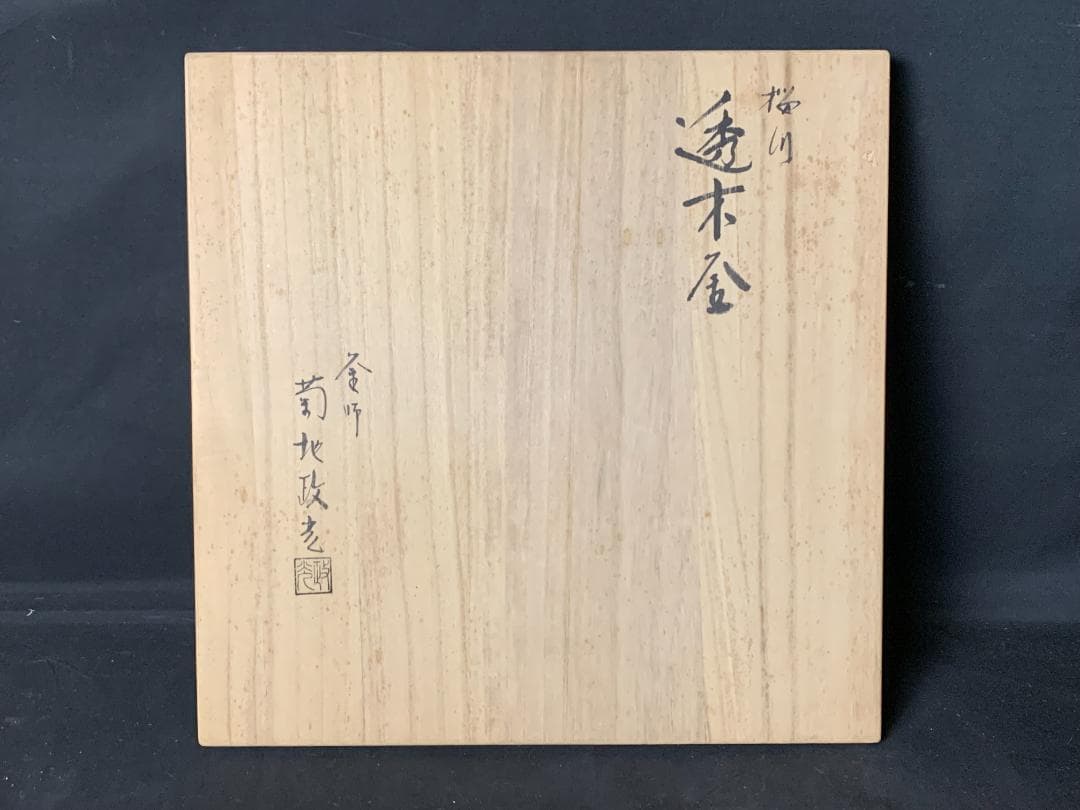 桜川
透木釜
釜師
菊地政光
政光